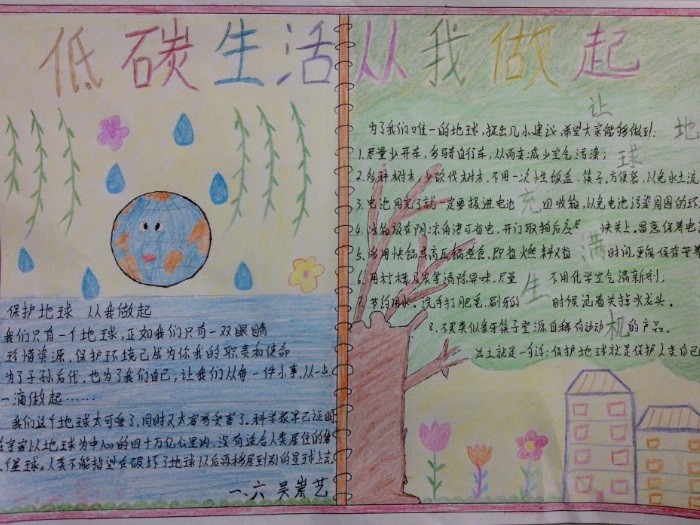 低碳生活从我做起
保护地球 从我做起
我们只有一个地球,正如我们只有一双眼睛
环境资源,保护环境已成为你我的职责和使命
为了子孙后代,也为了我们自己,让我们从每一件小事,从一点
一滴做起……
我们这个地球太可爱了,同时又太容易受害了。科学家早已证明
在宇宙以地球为中心的四十万亿公里内,没有适合人类居住的第
个星球。人类不能指望在破坏了地球以后再移居到别的星球上去
一、六 吴崇艺
让地球充满生机
为了我们唯一的地球,提出几小建议,希望大家能够做到:
1.尽量少开车,多骑自行车,从而来减少空气污染;
2.多种树木,少砍伐树木,不用一次性饭盒、筷子,方便袋,以免水土流
3.电池用完了就一定要投进电池回收箱,以免电池污染周围的环
4.冰箱放在阴凉角落可省电,开门取拍后应 快关上,显高保养
5.多用快锅其高压锅煮食,即省燃料又省 时间,更能保存营养
6.用柠檬 清除异味,尽量 不用化学空气清新剂;
7.节约用水。洗手打肥皂、刷牙的 时候记着关掉水龙头。
8.不买类似 筷子 资源 自稀有动 的产品。
总之就是一句话:保护地球就是保护人类自己